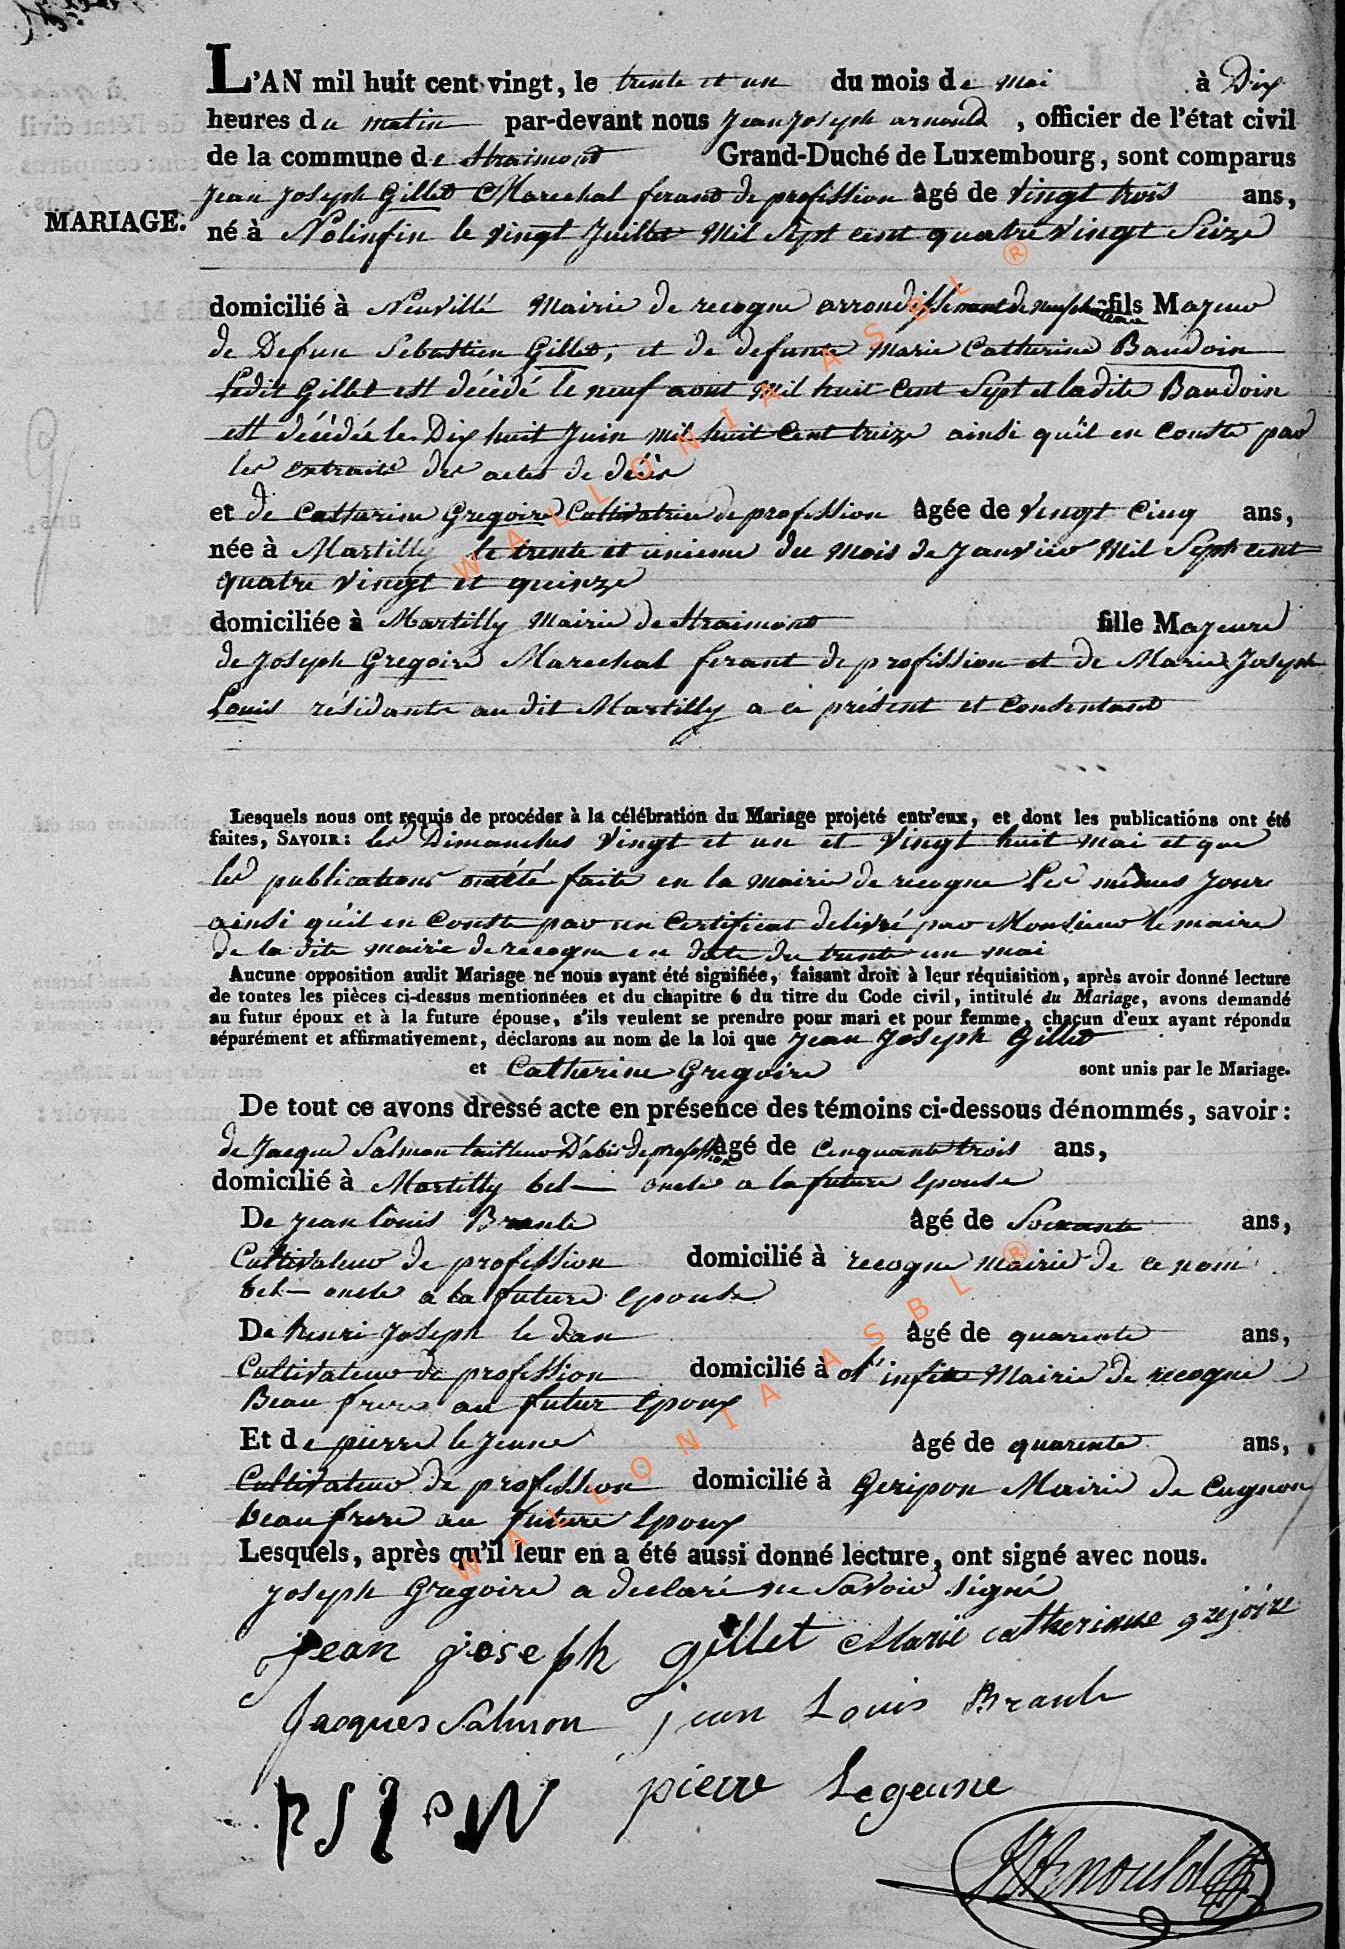 L'AN mil huit cent vingt, le trente et un du mois de mai à Dix
heures du matin par-devant nous Jean Joseph arnould, officier de l'état civil
de la commune de Straimont Grand-Duché de Luxembourg, sont comparus
Jean Joseph Gillet Marechal ferant de profission âgé de vingt trois ans,
MARIAGE.
né à Nolinfin le vingt Juillet Mil Sept cent quatre Vingt Seize
domicilié à Neuvillé Mairie de recogne arrondissement de neufchateau fils Majeur
de Defun Sebastien Gillet, et de defunte Marie Catherine Baudoin
Ledit Gillet est décédé le neuf aout Mil huit Cent Sept et ladite Baudoin
est décédée le Dix huit Juin mil huit Cent treize ainsi qu'il en Conste par
les extraits des actes de décès
et de Catherine Gregoire Cultivatrice de profession âgée de Vingt Cinq ans,
née à Martilly le trente et unieme du Mois de Janvier Mil Sept cent
quatre Vingt et quinze
domiciliée à Martilly Mairie de Straimont fille Majeure
de Joseph Gregoire Marechal ferant de profission et de Marie Joseph
Louis résidante au dit Martilly a ce présent et Consentant
Lesquels nous ont requis de procéder à la célébration du Mariage projeté entr'eux, et dont les publications ont été
faites, SAVOIR: les Dimanches Vingt et un et Vingt huit mai et que
les publications ont été faite en la mairie de recogne Les mêmes Jour
ainsi qu'il en Conste par un Certificat delivré par Monsieur le maire
de la dite mairie de recogne en date du trente un mai
Aucune opposition audit Mariage ne nous ayant été signifiée, faisant droit à leur réquisition, après avoir donné lecture
de toutes les pièces ci-dessus mentionnées et du chapitre 6 du titre du Code civil, intitulé du Mariage, avons demandé
au futur époux et à la future épouse, s'ils veulent se prendre pour mari et pour femme, chacun d'eux ayant répondu
séparément et affirmativement, déclarons au nom de la loi que Jean Joseph Gillet
et Catherine Gregoire sont unis par le Mariage.
De tout ce avons dressé acte en présence des témoins ci-dessous dénommés, savoir:
de Jacque Salmon tailleur D'abis de profession âgé de Cinquante trois ans,
domicilié à Martilly bel-oncle a la future Epouse
De Jean Louis Braule âgé de Soixante ans,
Cultivateur de profession domicilié à recogne mairie de ce nom
bel-oncle a la future Epouse
De henri Joseph le dan âgé de quarente ans,
Cultivateur de profession domicilié à Mairie de recogne
Beau frere au futur Epoux
Et de pierre le Jeune âgé de quarente ans,
Cultivateur de profession domicilié à Geripon Mairie de Cugnon
beau frere au future Epoux
Lesquels, après qu'il leur en a été aussi donné lecture, ont signé avec nous.
Joseph Gregoire a declaré ne Savoir Signé
jean joseph gillet Marie catherinne grejoire
Jacques Salmon jean Louis Braule
pierre Legeune
JJArnould
WALLONIA ASBL ®
WALLONIA ASBL ®